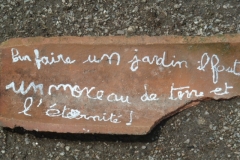 Pour faire un jardin il faut
un morceau de terre et
l'éternité!